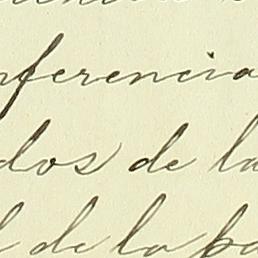 nferencia
dos de la
l de la pa